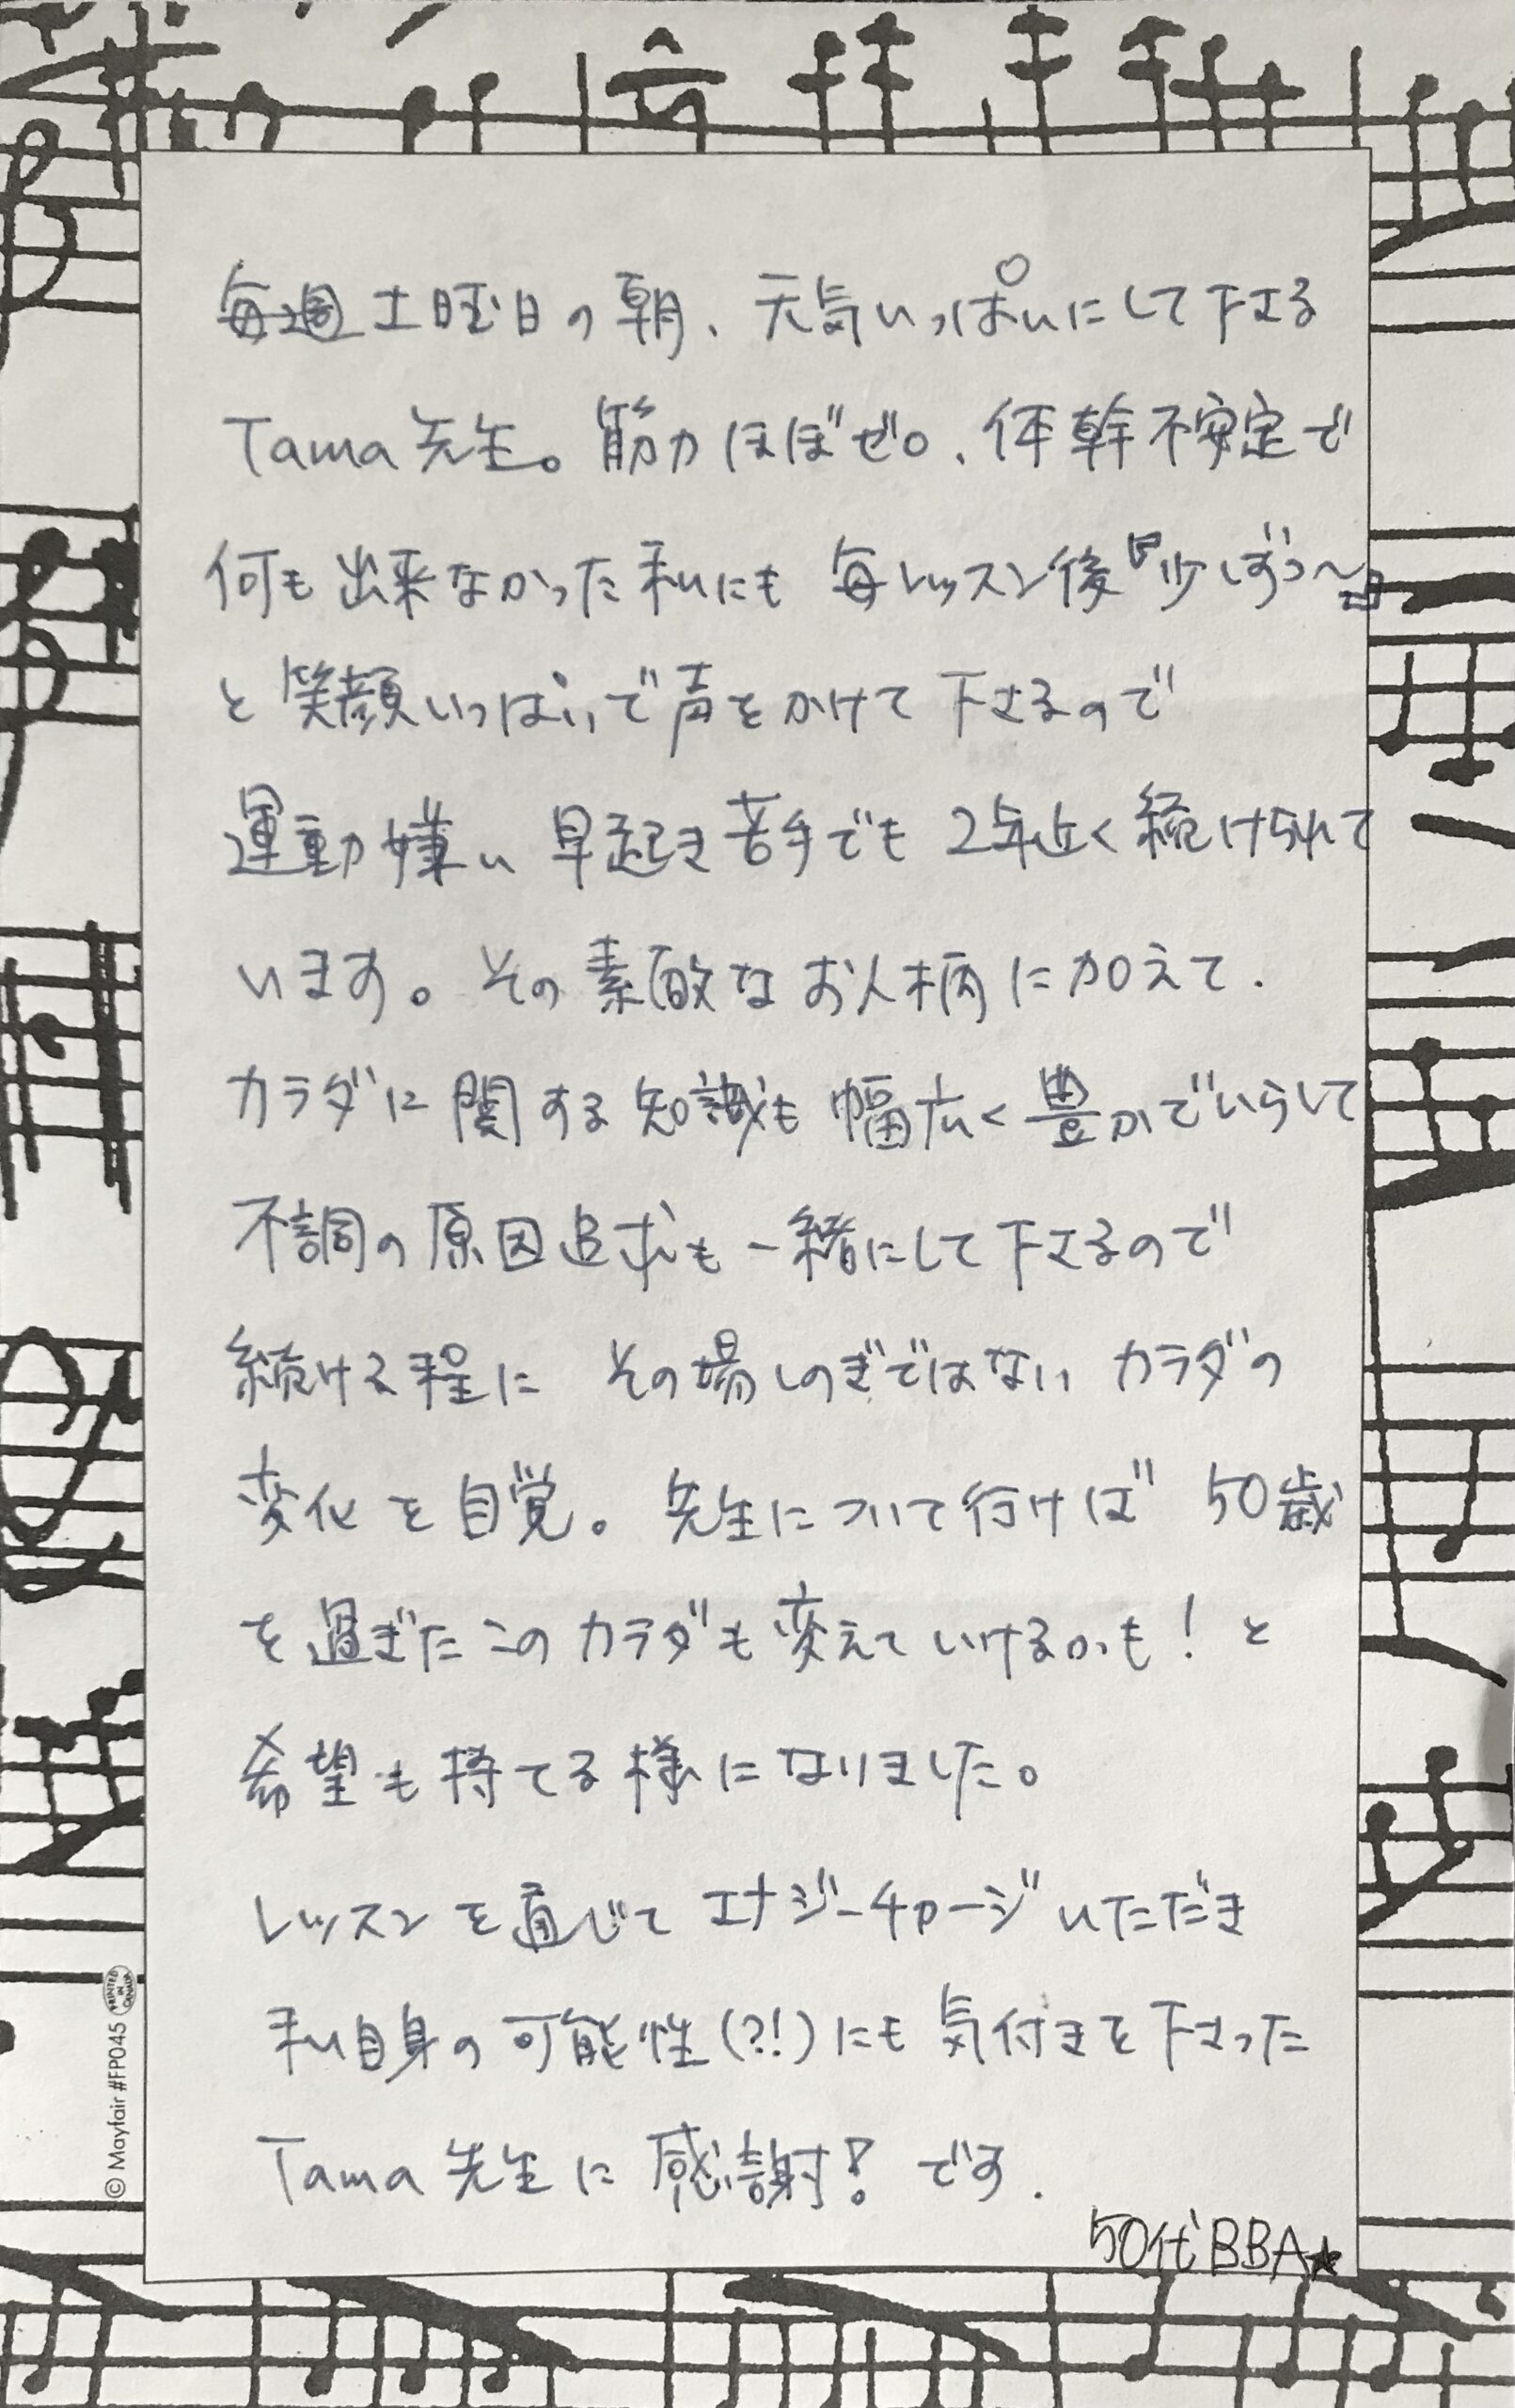 毎週土曜日の朝、元気いっぱいにして下さる
Tama先生。筋力ほぼゼロ、体幹不安定で
何も出来なかった私にも 毎レッスン後『少しずつ〜』
と笑顔いっぱいで声をかけて下さるので
運動嫌い 早起き苦手でも 2年近く続けられて
います。その素敵なお人柄に加えて、
カラダに関する知識も幅広く豊かでいらして
不調の原因追求も一緒にして下さるので
続ける程に その場しのぎではない カラダの
変化を自覚。先生について行けば 50歳
を過ぎたこのカラダも変えていけるかも！と
希望も持てる様になりました。
レッスンを通じて エナジーチャージいただき
私自身の可能性(?!)にも気付きを下さった
Tama先生に感謝！です.
50代BBA★
© Mayfair #FP045 PRINTED IN CANADA